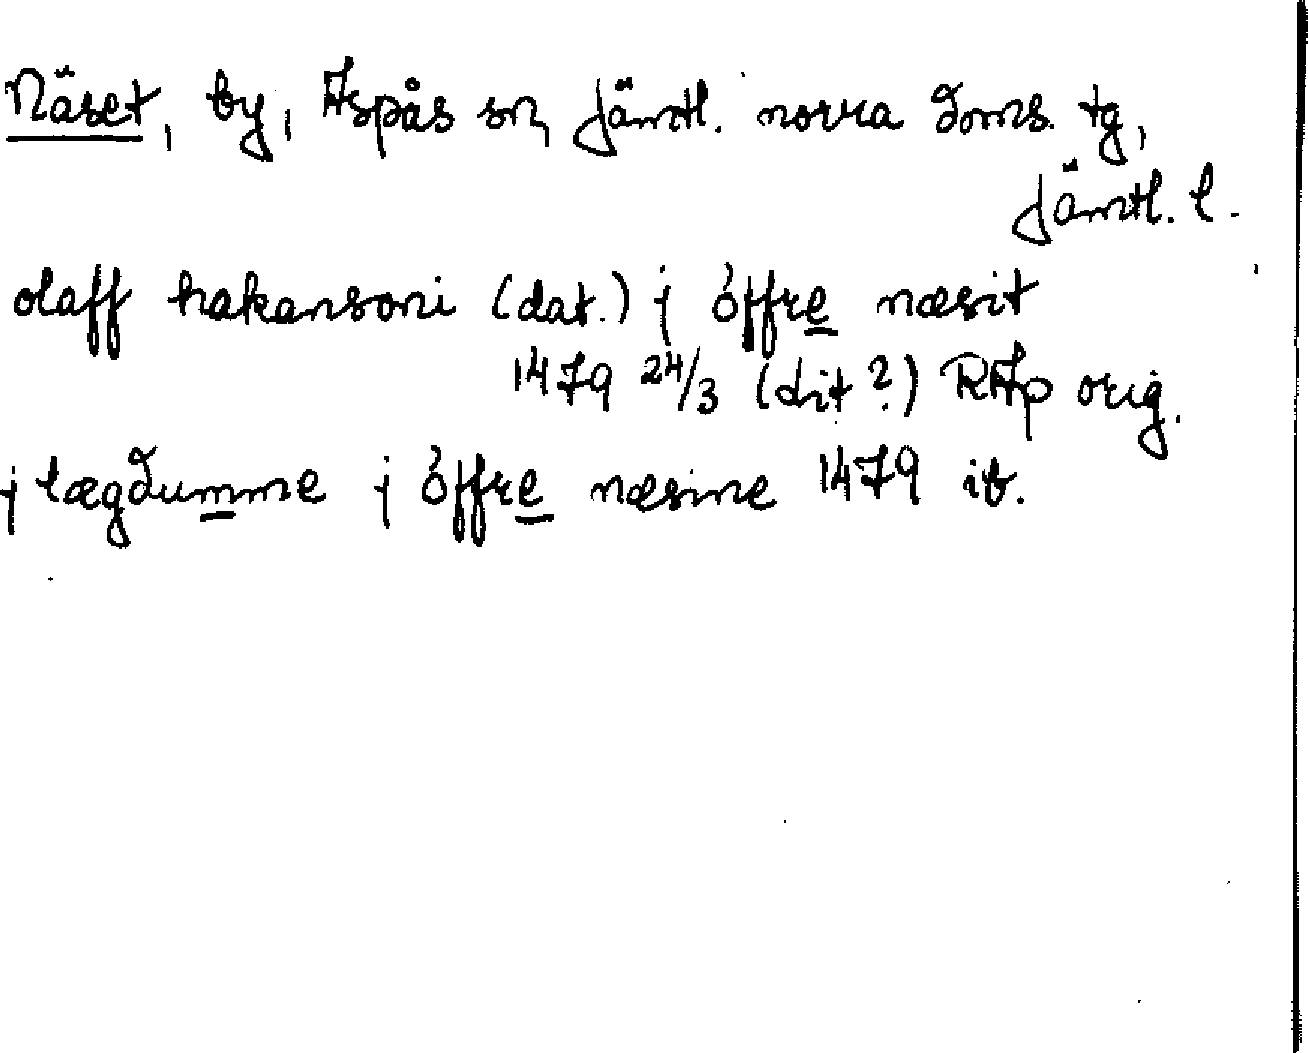 Näset, by, Aspås sn, Jämtl. norra doms. tg,
Jämtl. l.
olaff hakansoni (dat.) j óffre næsit
1479 24/3 (dit?) RAp orig.
j lægdumme j óffre næsine 1479 ib.